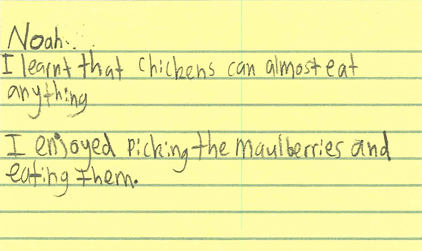 Noah..
I learnt that chickens can almost eat
anything
I enjoyed picking the maulberries and
eating them.